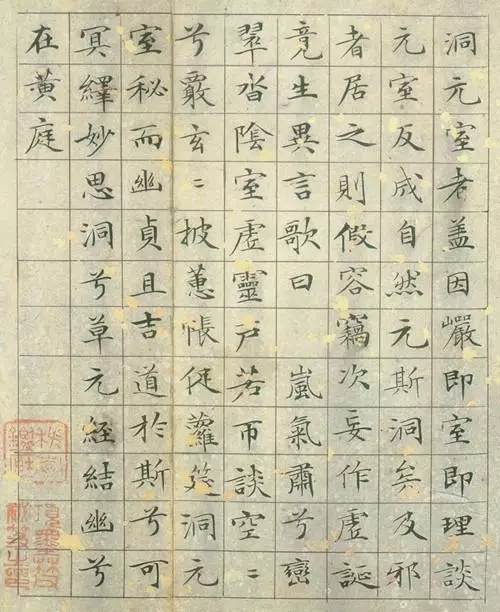 洞元室者盖因巖即室即理談
元室反成自然元斯洞矣及邪
者居之則假容竊次妄作虛誕
竟生異言歌曰 嵐氣肅兮巒
翠沓陰室虛靈戶若帀談空〻
兮覈玄〻披蕙帳促蘿筵洞元
室秘而幽貞且吉道於斯兮可
冥繹妙思洞兮草元經結幽兮
在黃庭
項墨林父
秘笈之印